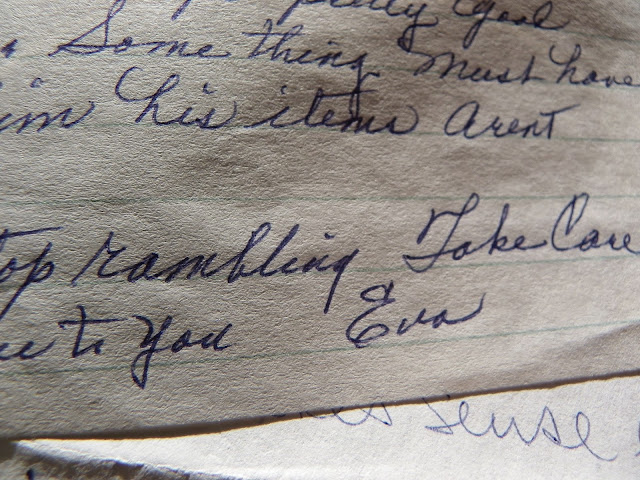 pretty good
. Something must have
him his items arent
top rambling Take Care
to You Eva
sense